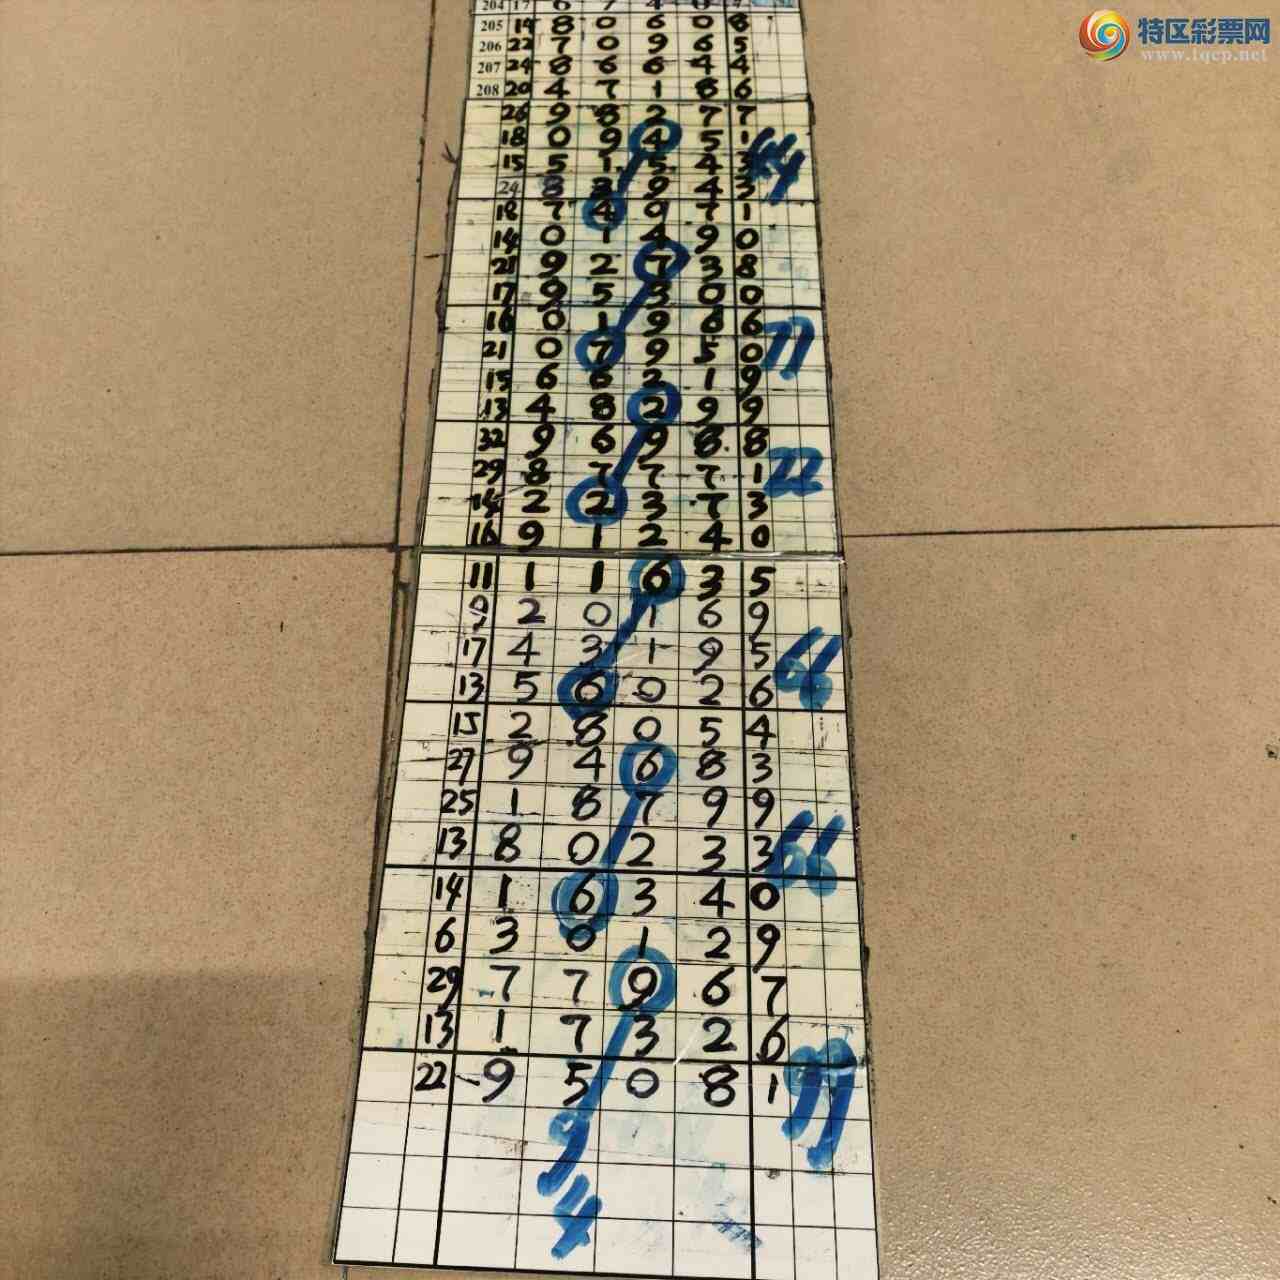 特区彩票网
www.tqcp.net
204 17 6 7 4 0
205 14 8 0 6 0 8
206 22 7 0 9 6 5
207 24 8 6 6 4 4
208 20 4 7 1 8 6
26 9 8 2 7 7
18 0 9 4 5 1
15 5 1 5 4 3
24 8 3 9 4 3
44
18 7 4 0 7 1
14 0 1 4 9 0
21 9 2 7 3 8
17 9 5 3 0 0
16 0 1 9 6 6
77
21 0 7 9 5 0
15 6 6 2 1 9
13 4 8 2 9 9
32 9 6 9 8 8
29 8 7 7 7 1
22
14 2 2 3 7 3
16 9 1 2 4 0
11 1 1 6 3 5
9 2 0 1 6 9
17 4 3 1 9 5
66
13 5 6 0 2 6
15 2 8 0 5 4
27 9 4 6 8 3
25 1 8 7 9 9
13 8 0 2 3 3
66
14 1 6 3 4 0
6 3 0 1 2 9
29 7 7 9 6 7
13 1 7 3 2 6
22 9 5 0 8 1
99
9
4